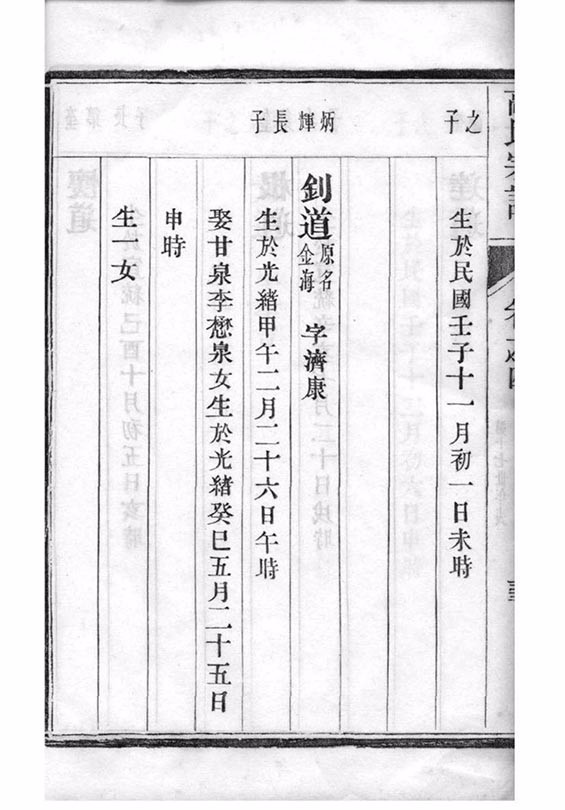 氏宗譜 卷之四
之子
生於民國壬子十一月初一日未時
炳輝長子
釗道 原名金海 字濟康
生於光緒甲午二月二十六日午時
娶甘泉李懋泉女生於光緒癸巳五月二十五日
申時
生一女